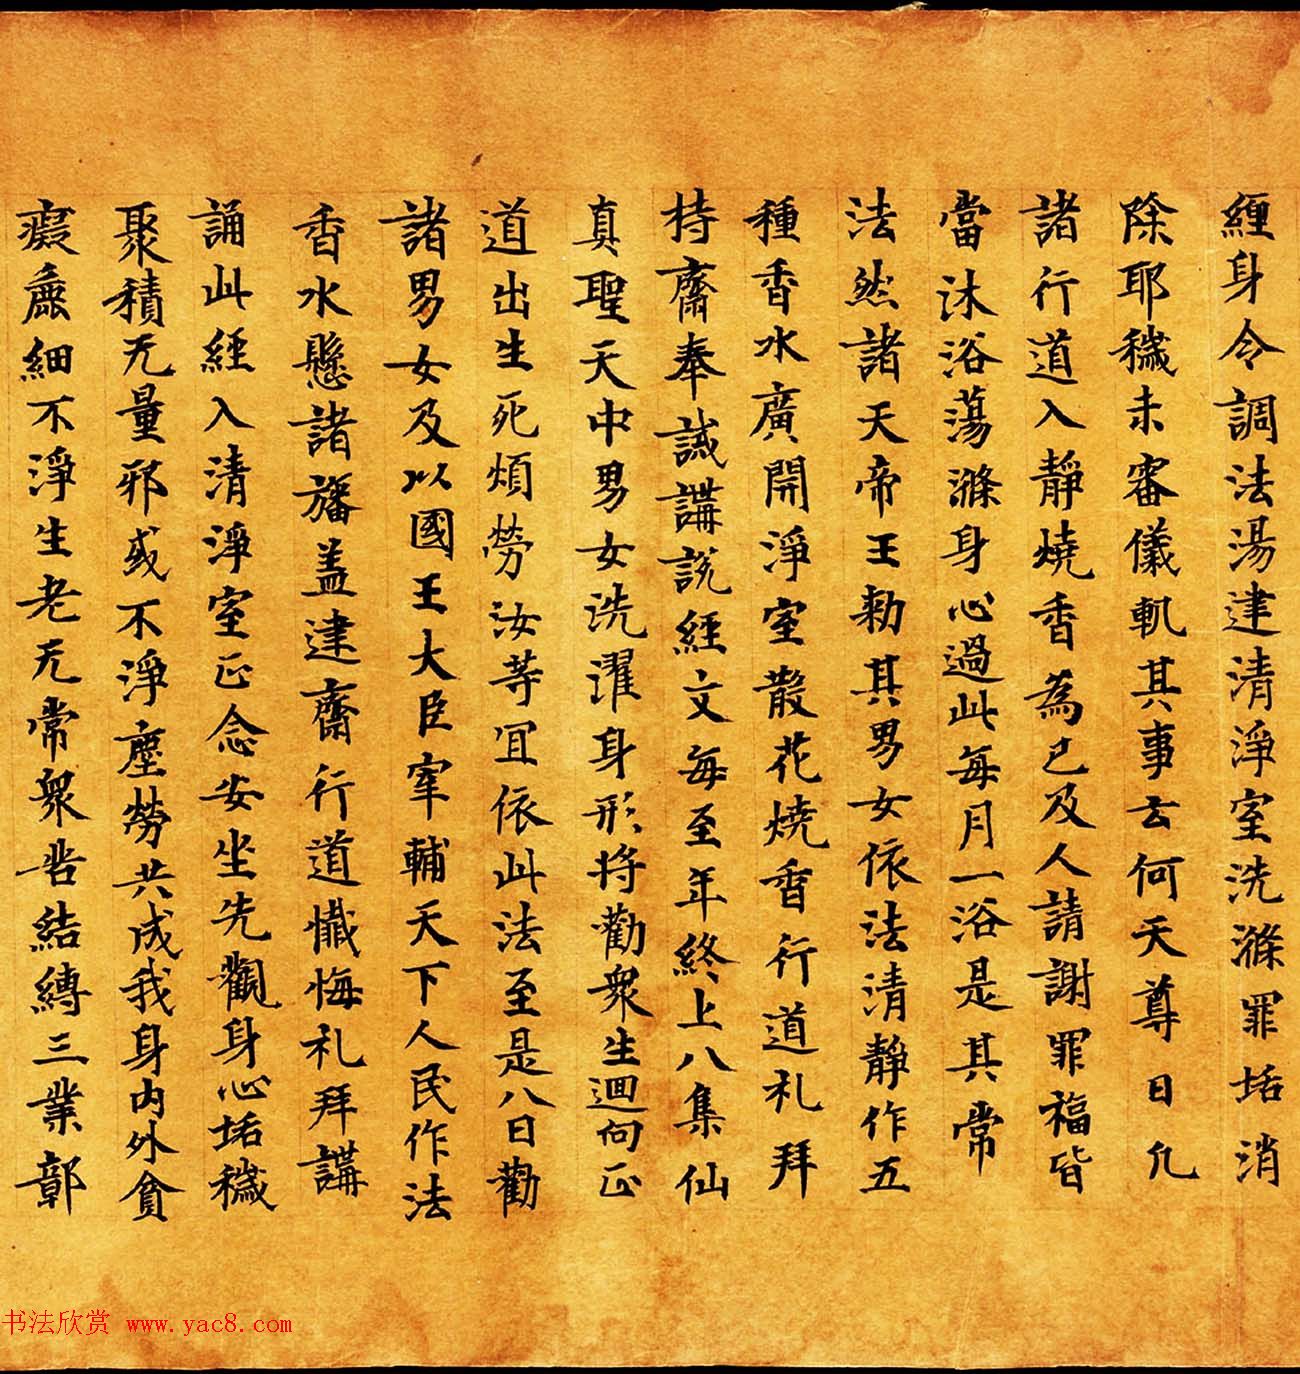 經身令調法湯建清淨室洗滌罪垢消
除耶穢未審儀軌其事云何天尊曰凢
諸行道入靜燒香為已及人請謝罪福皆
當沐浴蕩滌身心過此每月一浴是其常
法然諸天帝王勑其男女依法清靜作五
種香水廣開淨室散花燒香行道礼拜
持齋奉誡講說經文每至年終上八集仙
真聖天中男女洗濯身形将勸衆生迴向正
道出生死煩勞汝等冝依此法至是八日勸
諸男女及以國王大臣宰輔天下人民作法
香水懸諸旛盖建齋行道懺悔礼拜講
誦此經入清淨室正念安坐先觀身心垢穢
聚積无量邪或不淨塵勞共成我身内外貪
癡麁細不淨生老无常衆苦結縛三業鄣
书法欣赏 www.yac8.com